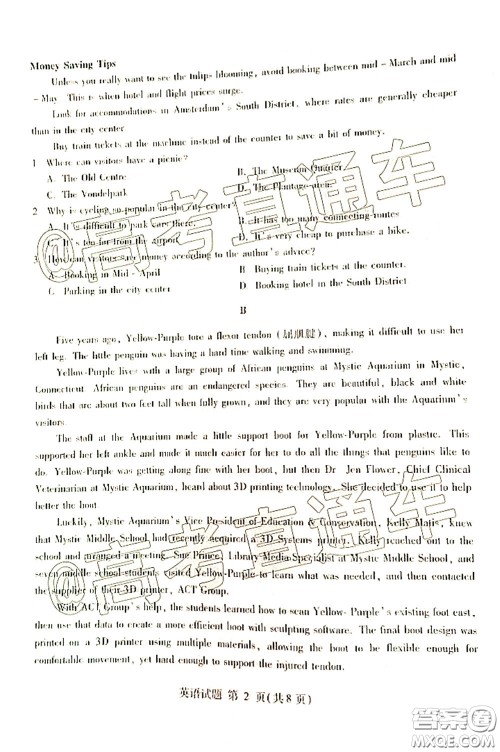 Money Saving Tips
Unless you really want to see the tulips blooming, avoid booking between mid - March and mid
- May. This is when hotel and flight prices surge.
Look for accommodations in Amsterdam's South District, where rates are generally cheaper
than in the city center.
Buy train tickets at the machine instead of the counter to save a bit of money.
1 Where can visitors have a picnic?
A. The Old Centre B. The Museum Quarter.
C. The Vondelpark D. The Plantage area.
2 Why is cycling so popular in the city center?
A. It is difficult to park cars there. B. It has too many connecting routes
C. It's too far from the airport D. It's very cheap to purchase a bike.
3 How can visitors save money according to the author's advice?
A. Booking in Mid - April B Buying train tickets at the counter.
C Parking in the city center D Booking hotel in the South District
B
Five years ago, Yellow-Purple tore a flexor tendon (屈肌腱), making it difficult to use her
left leg. The little penguin was having a hard time walking and swimming.
Yellow-Purple lives with a large group of African penguins at Mystic Aquarium in Mystic,
Connecticut African penguins are an endangered species. They are beautiful, black and white
birds that are about two feet tall when fully grown, and they are very popular with the Aquarium's
visitors
The staff at the Aquarium made a little support boot for Yellow-Purple from plastic. This
supported her left ankle and made it much easier for her to do all the things that penguins like to
do. Yellow-Purple was getting along fine with her boot, but then Dr Jen Flower, Chief Clinical
Veterinarian at Mystic Aquarium, heard about 3D printing technology. She decided to use it to help
better the boot
Luckily, Mystic Aquarium's Vice President of Education & Conservation, Kelly Matis, knew
that Mystic Middle School had recently acquired a 3D Systems printer. Kelly reached out to the
school and arranged a meeting. Sue Prince, Library Media Specialist at Mystic Middle School, and
seven middle school students visited Yellow-Purple to learn what was needed, and then contacted
the supplier of their 3D printer, ACT Group.
With ACT Group's help, the students learned how to scan Yellow- Purple's existing foot cast,
then use that data to create a more efficient boot with sculpting software. The final boot design was
printed on a 3D printer using multiple materials, allowing the boot to be flexible enough for
comfortable movement, yet hard enough to support the injured tendon.
英语试题 第 2 页(共8页)
@高考直通车
@高考直通车
答案圈
MXQE.COM